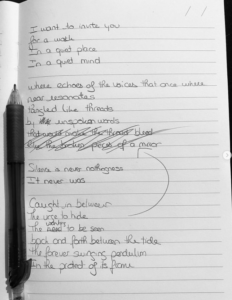 I want to invite you
for a walk
In a quiet place
In a quiet mind
where echoes of the voices that once where
near resonates
tangled like threats
by the unspoken words
that would make the thread bleed
like the broken pieces of a mirror
Silence is never nothingness
It never was
Caught in between
The urge to hide
The wanting to be seen
back and forth between the tide
the forever swinging pendulum
In the protect of its frame